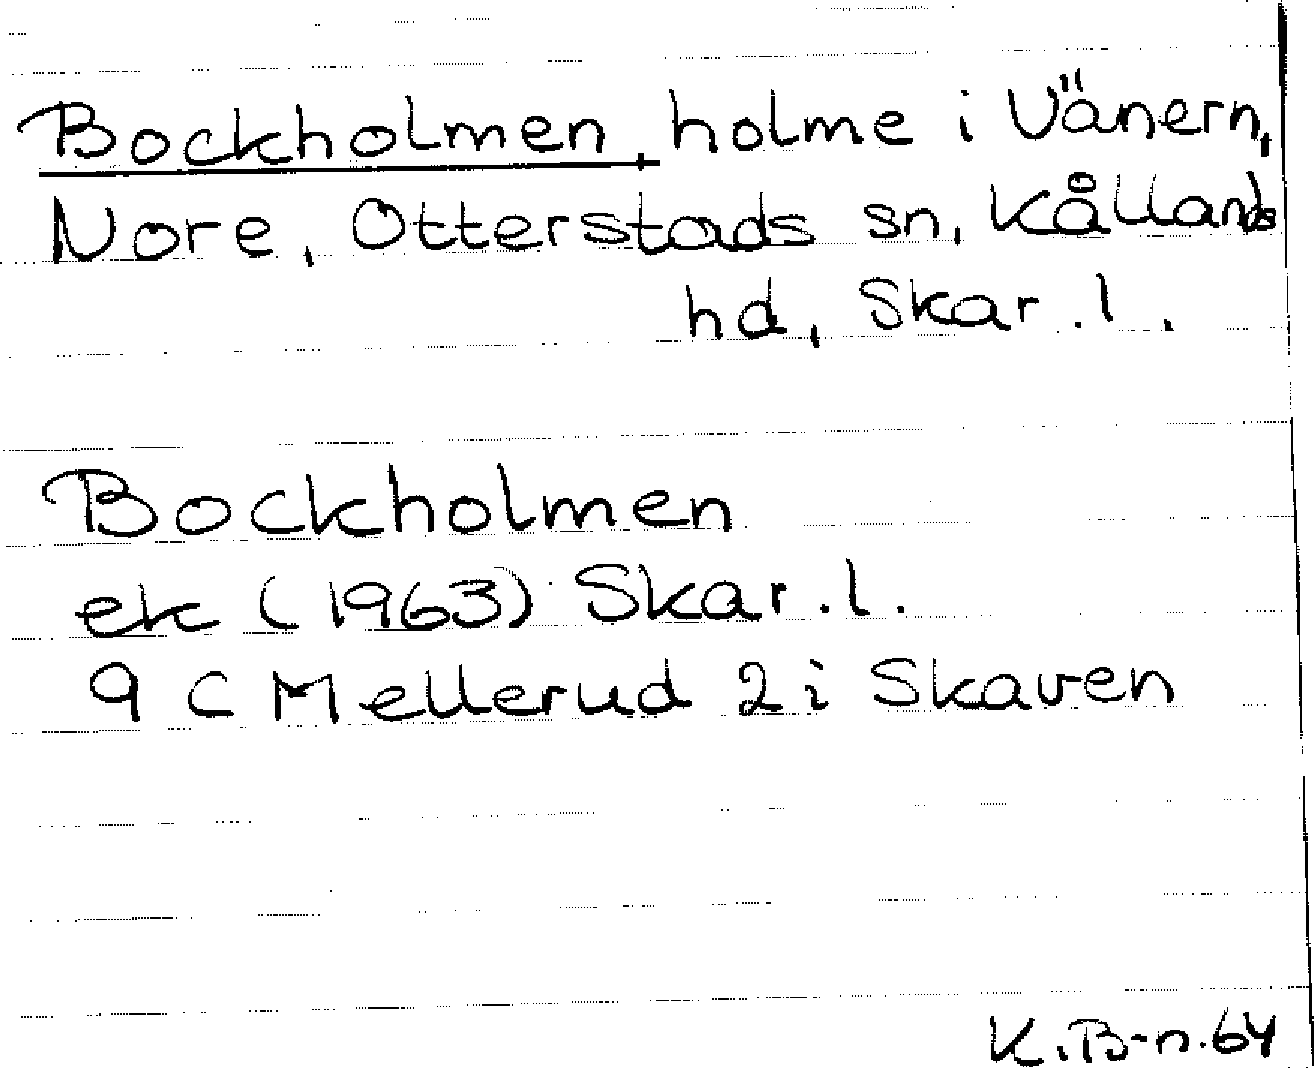 Bockholmen, holme i Vänern,
Nore, Otterstads sn, Kållands
hd, Skar. l.
Bockholmen
ek (1963) Skar. l.
9 C Mellerud 2 i Skaven
K. B-n. 64